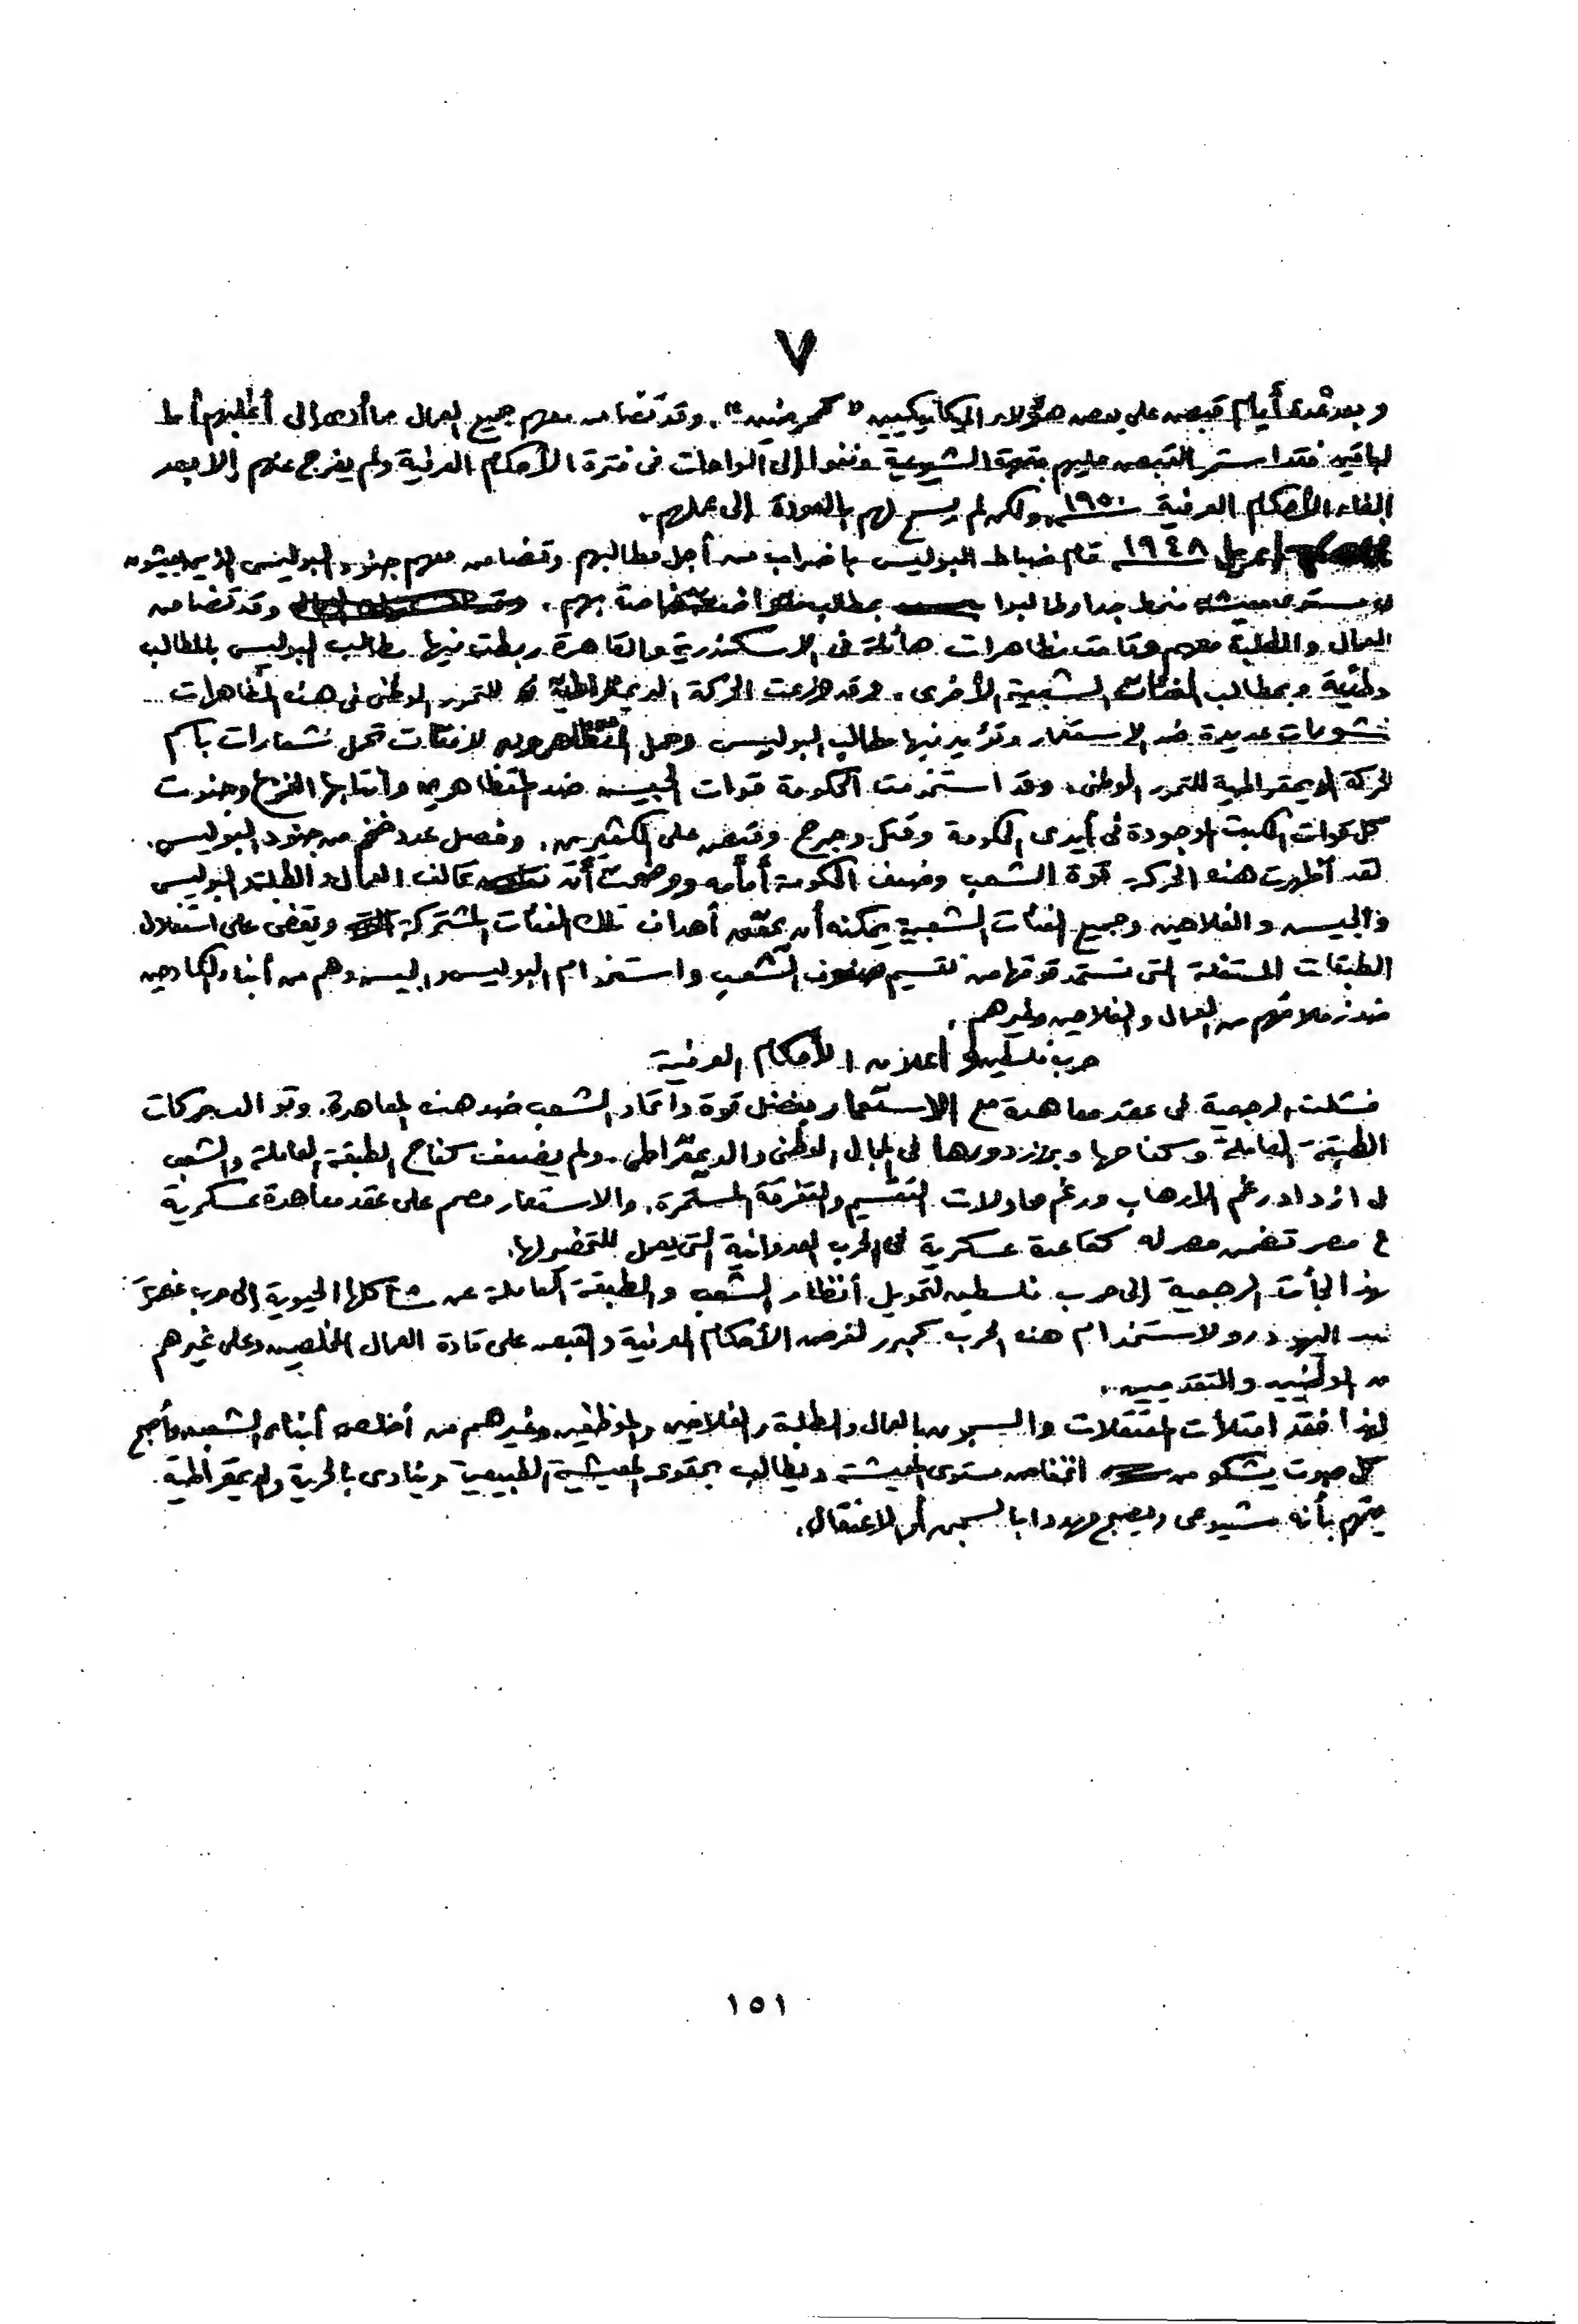 ٧
و بعد عدة أيام قبض على بعض هؤلاء الميكانيكيين "كمحرضين". وقد تضامن معهم جميع العمال مما أدى إلى أغلبهم أما
الباقين فقد استمر القبض عليهم بتهمة الشيوعية ونفوا إلى الواحات فى فترة الأحكام العرفية ولم يفرج عنهم إلا بعد
الغاء الأحكام العرفية ١٩٥٠ ولكن لم يسمح لهم بالعودة إلى عملهم.
إبريل ١٩٤٨ قام ضباط البوليس باضراب من أجل مطالبهم وتضامن معهم جنود البوليس الذين يعيشون
مستوى معيشة منحط جدا وطالبوا بمطالب خاصة بهم. وقد تضامن
العمال والطلبة معهم وقامت مظاهرات هائلة فى الاسكندرية والقاهرة ربطت فيها مطالب البوليس بالمطالب
وطنية وبمطالب الفئات الشعبية الأخرى. وقد وزعت الحركة الديمقراطية للتحرر الوطنى فى هذه المظاهرات
نشورات عديدة ضد الاستعمار وتؤيد فيها مطالب البوليس وحمل المتظاهرون لافتات تحمل شعارات باسم
لحركة الديمقراطية للتحرر الوطنى. وقد استخدمت الحكومة قوات الجيش ضد المتظاهرين وانتابها الفزع وجندت
كل قوات الكبت الموجودة فى أيدى الحكومة وقتل وجرح وقبض على الكثيرين. وفصل عدد ضخم من جنود البوليس.
لقد أظهرت هذه الحركة قوة الشعب وضعف الحكومة أمامه ووضحت أن تحالف العمال والطلبة والبوليس
والجيش والفلاحين وجميع الفئات الشعبية يمكنه أن يحقق أهداف تلك الفئات المشتركة ويقضى على استغلال
الطبقات المستغلة التى تستمد قوتها من تقسيم صفوف الشعب واستخدام البوليس والجيش وهم من أبناء الكادحين
ضد زملائهم من العمال والفلاحين وغيرهم.
حرب فلسطين وأعلان الأحكام العرفية
فشلت الرجعية فى عقد معاهدة مع الاستعمار بفضل قوة واتحاد الشعب ضد هذه المعاهدة. وتوالت حركات
الطبقة العاملة وكفاحها وبرز دورها فى المجال الوطنى والديمقراطى. ولم يضعف كفاح الطبقة العاملة والشعب
ل ازداد رغم الأرهاب ورغم محاولات التقسيم والتفرقة المستمرة. والاستعمار مصمم على عقد معاهدة عسكرية
ع مصر تضمن مصر له كقاعدة عسكرية فى الحرب العدوانية التى يعمل للتحضير لها.
لهذا لجأت الرجعية إلى حرب فلسطين لتحويل أنظار الشعب والطبقة العاملة عن مشاكلها الحيوية إلى حرب عنصرية
ضد اليهود ولاستخدام هذه الحرب كمبرر لفرض الأحكام العرفية والقبض على قادة العمال المخلصين وعلى غيرهم
من الوطنيين والتقدميين.
لهذا فقد امتلأت المعتقلات والسجون بالعمال والطلبة والفلاحين والموظفين وغيرهم من أخلص أبناء الشعب وأصبح
كل صوت يشكو من انخفاض مستوى المعيشة ويطالب بحقوق المعيشة الطبيعية وينادى بالحرية والديمقراطية
يتهم بأنه شيوعى ويصبح مهددا بالسجن أو الاعتقال.
١٥١